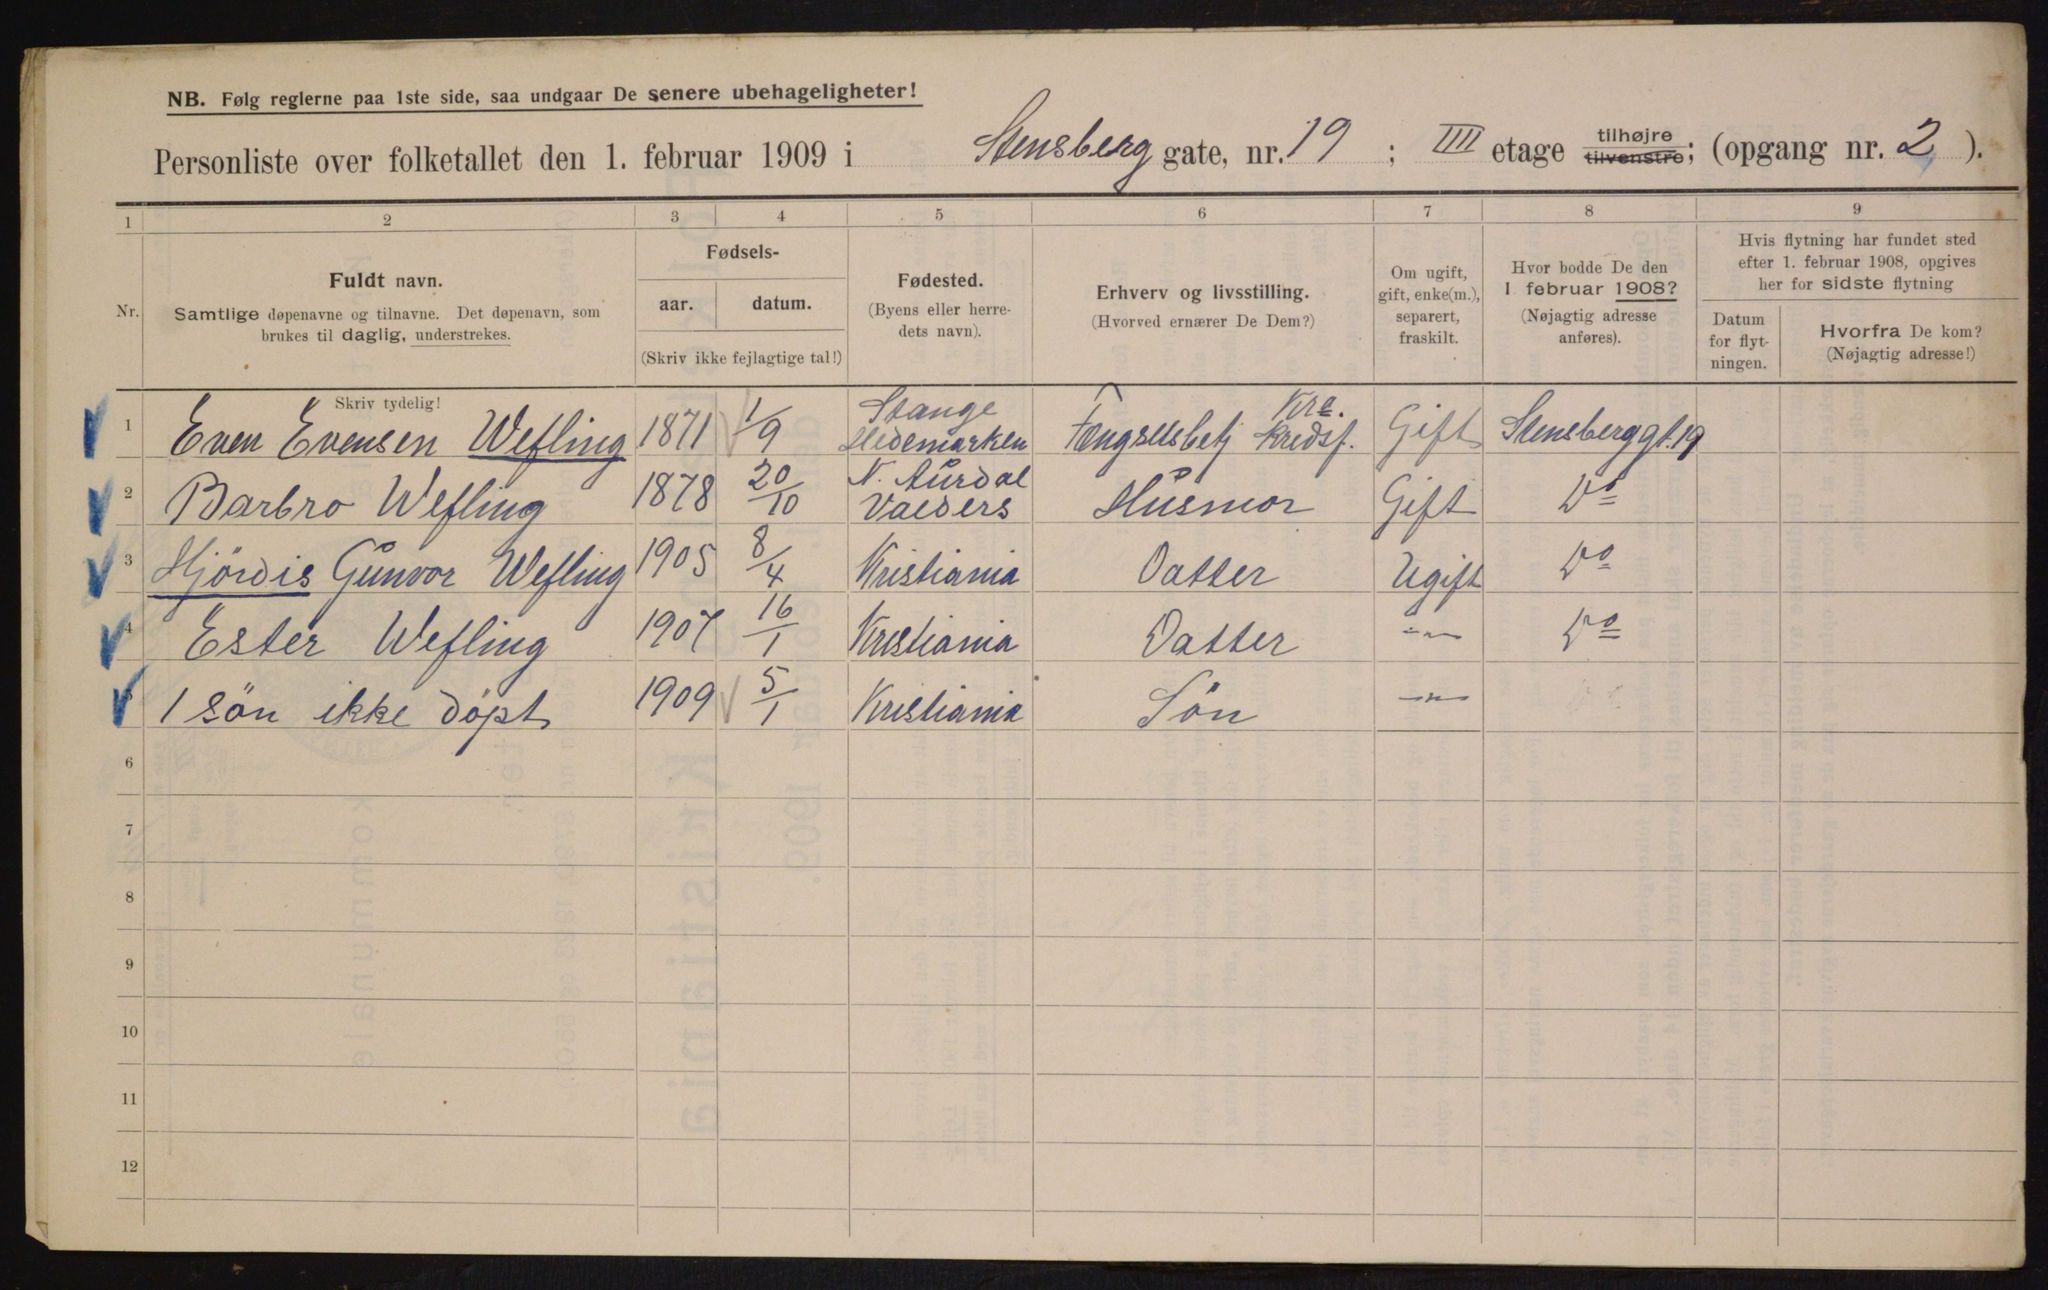 NB. Følg reglerne paa 1ste side, saa undgaar De senere ubehageligheter!
Personliste over folketallet den 1. februar 1909 i Stensberg gate, nr. 19 ; IIII etage tilhøjre tilvenstre; (opgang nr. 2 ).
1 2 3 4 5 6 7 8 9
Nr.
Fuldt navn.
Samtlige døpenavne og tilnavne. Det døpenavn, som
brukes til daglig, understrekes.
Skriv tydelig!
Fødsels-
aar. datum.
(Skriv ikke fejlagtige tal!)
Fødested.
(Byens eller herre-
dets navn).
Erhverv og livsstilling.
(Hvorved ernærer De Dem?)
Om ugift,
gift, enke(m.),
separert,
fraskilt.
Hvor bodde De den
1 februar 1908?
(Nøjagtig adresse
anføres).
Hvis flytning har fundet sted
efter 1. februar 1908, opgives
her for sidste flytning
Datum
for flyt-
ningen.
Hvorfra De kom?
(Nøjagtig adresse!)
1 Even Evensen Wefling 1871 1/9 Stange Hedemarken Fængselsbetj Kra. Kredsf. Gift Stensberggt. 19
2 Barbro Wefling 1878 20/10 N. Aurdal Valders Husmor Gift Do
3 Hjördis Gunvor Wefling 1905 8/4 Kristiania Datter Ugift Do
4 Ester Wefling 1907 16/1 Kristiania Datter —"— Do
5 1 sön ikke döpt 1909 5/1 Kristiania Sön —"—
6
7
8
9
10
11
12